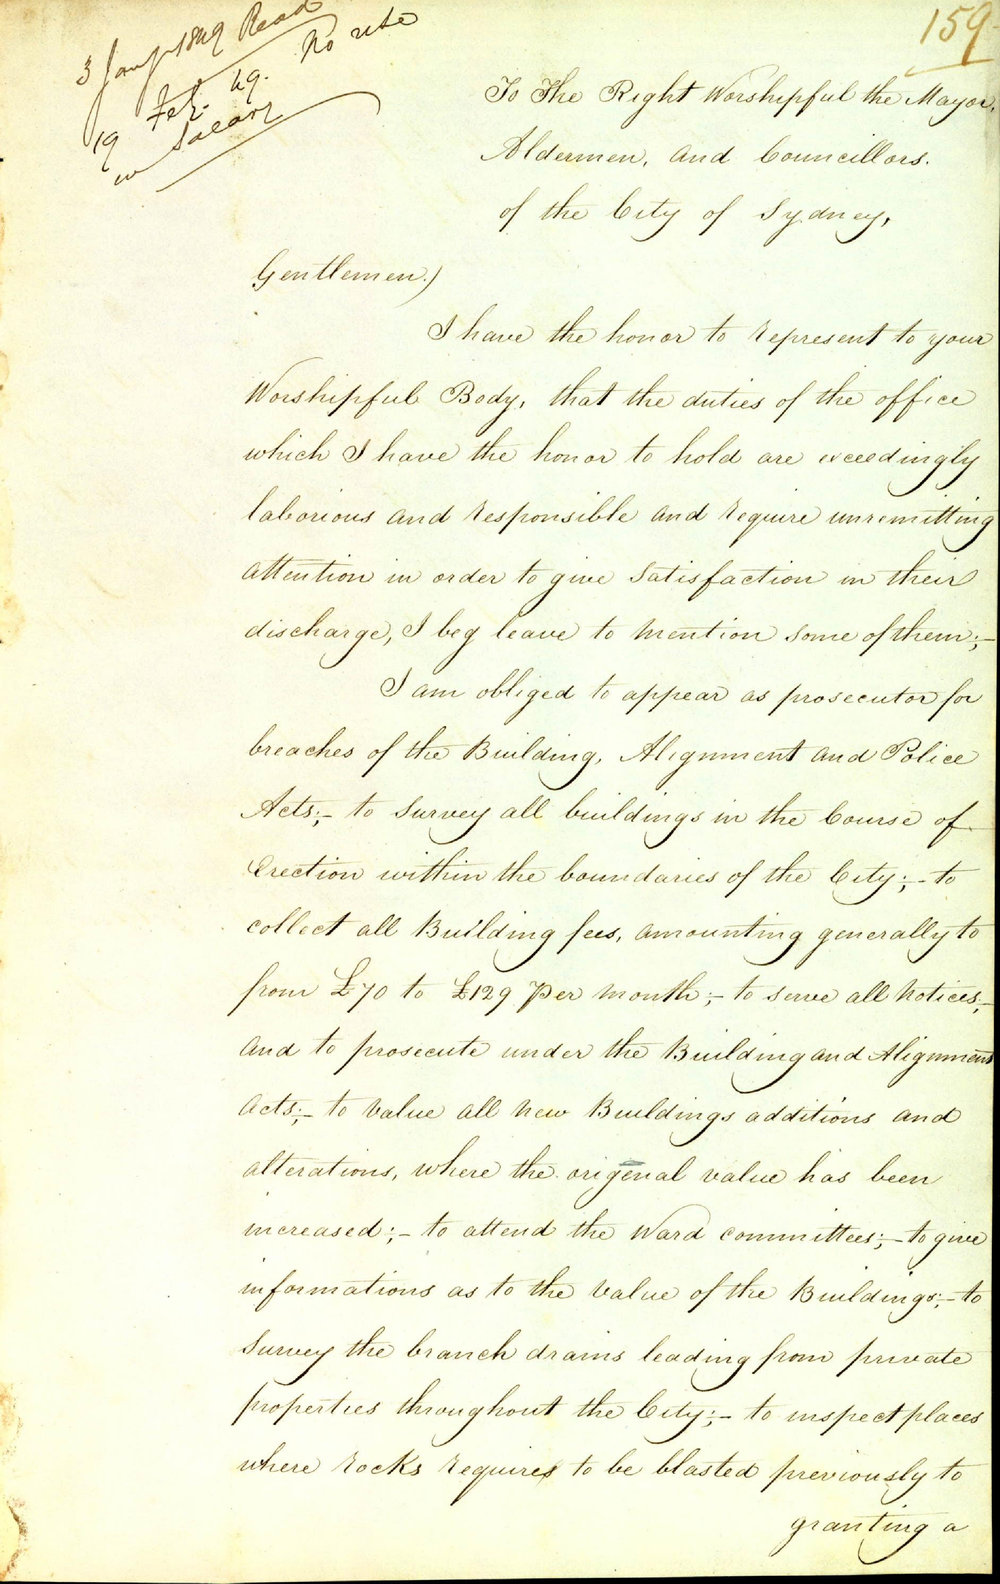 3 Jany 1849 Read
No rule
19 Feb. 49.
Salary
159
To The Right Worshipful the Mayor,
Aldermen, and Councillors.
of the City of Sydney,
Gentlemen.)
I have the honor to represent to your
Worshipful Body, that the duties of the office
which I have the honor to hold are exceedingly
laborious and responsible and require unremitting
attention in order to give satisfaction in their
discharge, I beg leave to mention some of them;-
I am obliged to appear as prosecutor for
breaches of the Building, Alignment and Police
Acts;- to survey all buildings in the Course of
Erection within the boundaries of the City;- to
collect all Building fees, amounting generally to
from £70 to £129 per month;- to serve all Notices;-
and to prosecute under the Building and Alignment
Acts;- to value all new Buildings additions and
alterations, where the original value has been
increased;- to attend the Ward committees;- to give
informations as to the value of the Buildings;- to
survey the branch drains leading from private
properties throughout the City;- to inspect places
where rocks requires to be blasted previously to
granting a